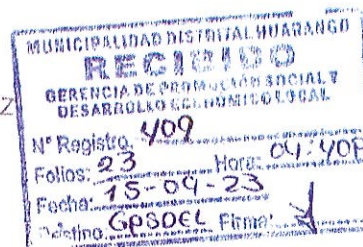 MUNICIPALIDAD DISTRITAL HUARANGO
RECIBIDO
GERENCIA DE PROMOCIÓN SOCIAL Y
DESARROLLO ECONOMICO LOCAL
N° Registro. 409
Folios: 23 Hora: 04:40P
Fecha: 15-09-23
Destino. GPSDEL Firma: